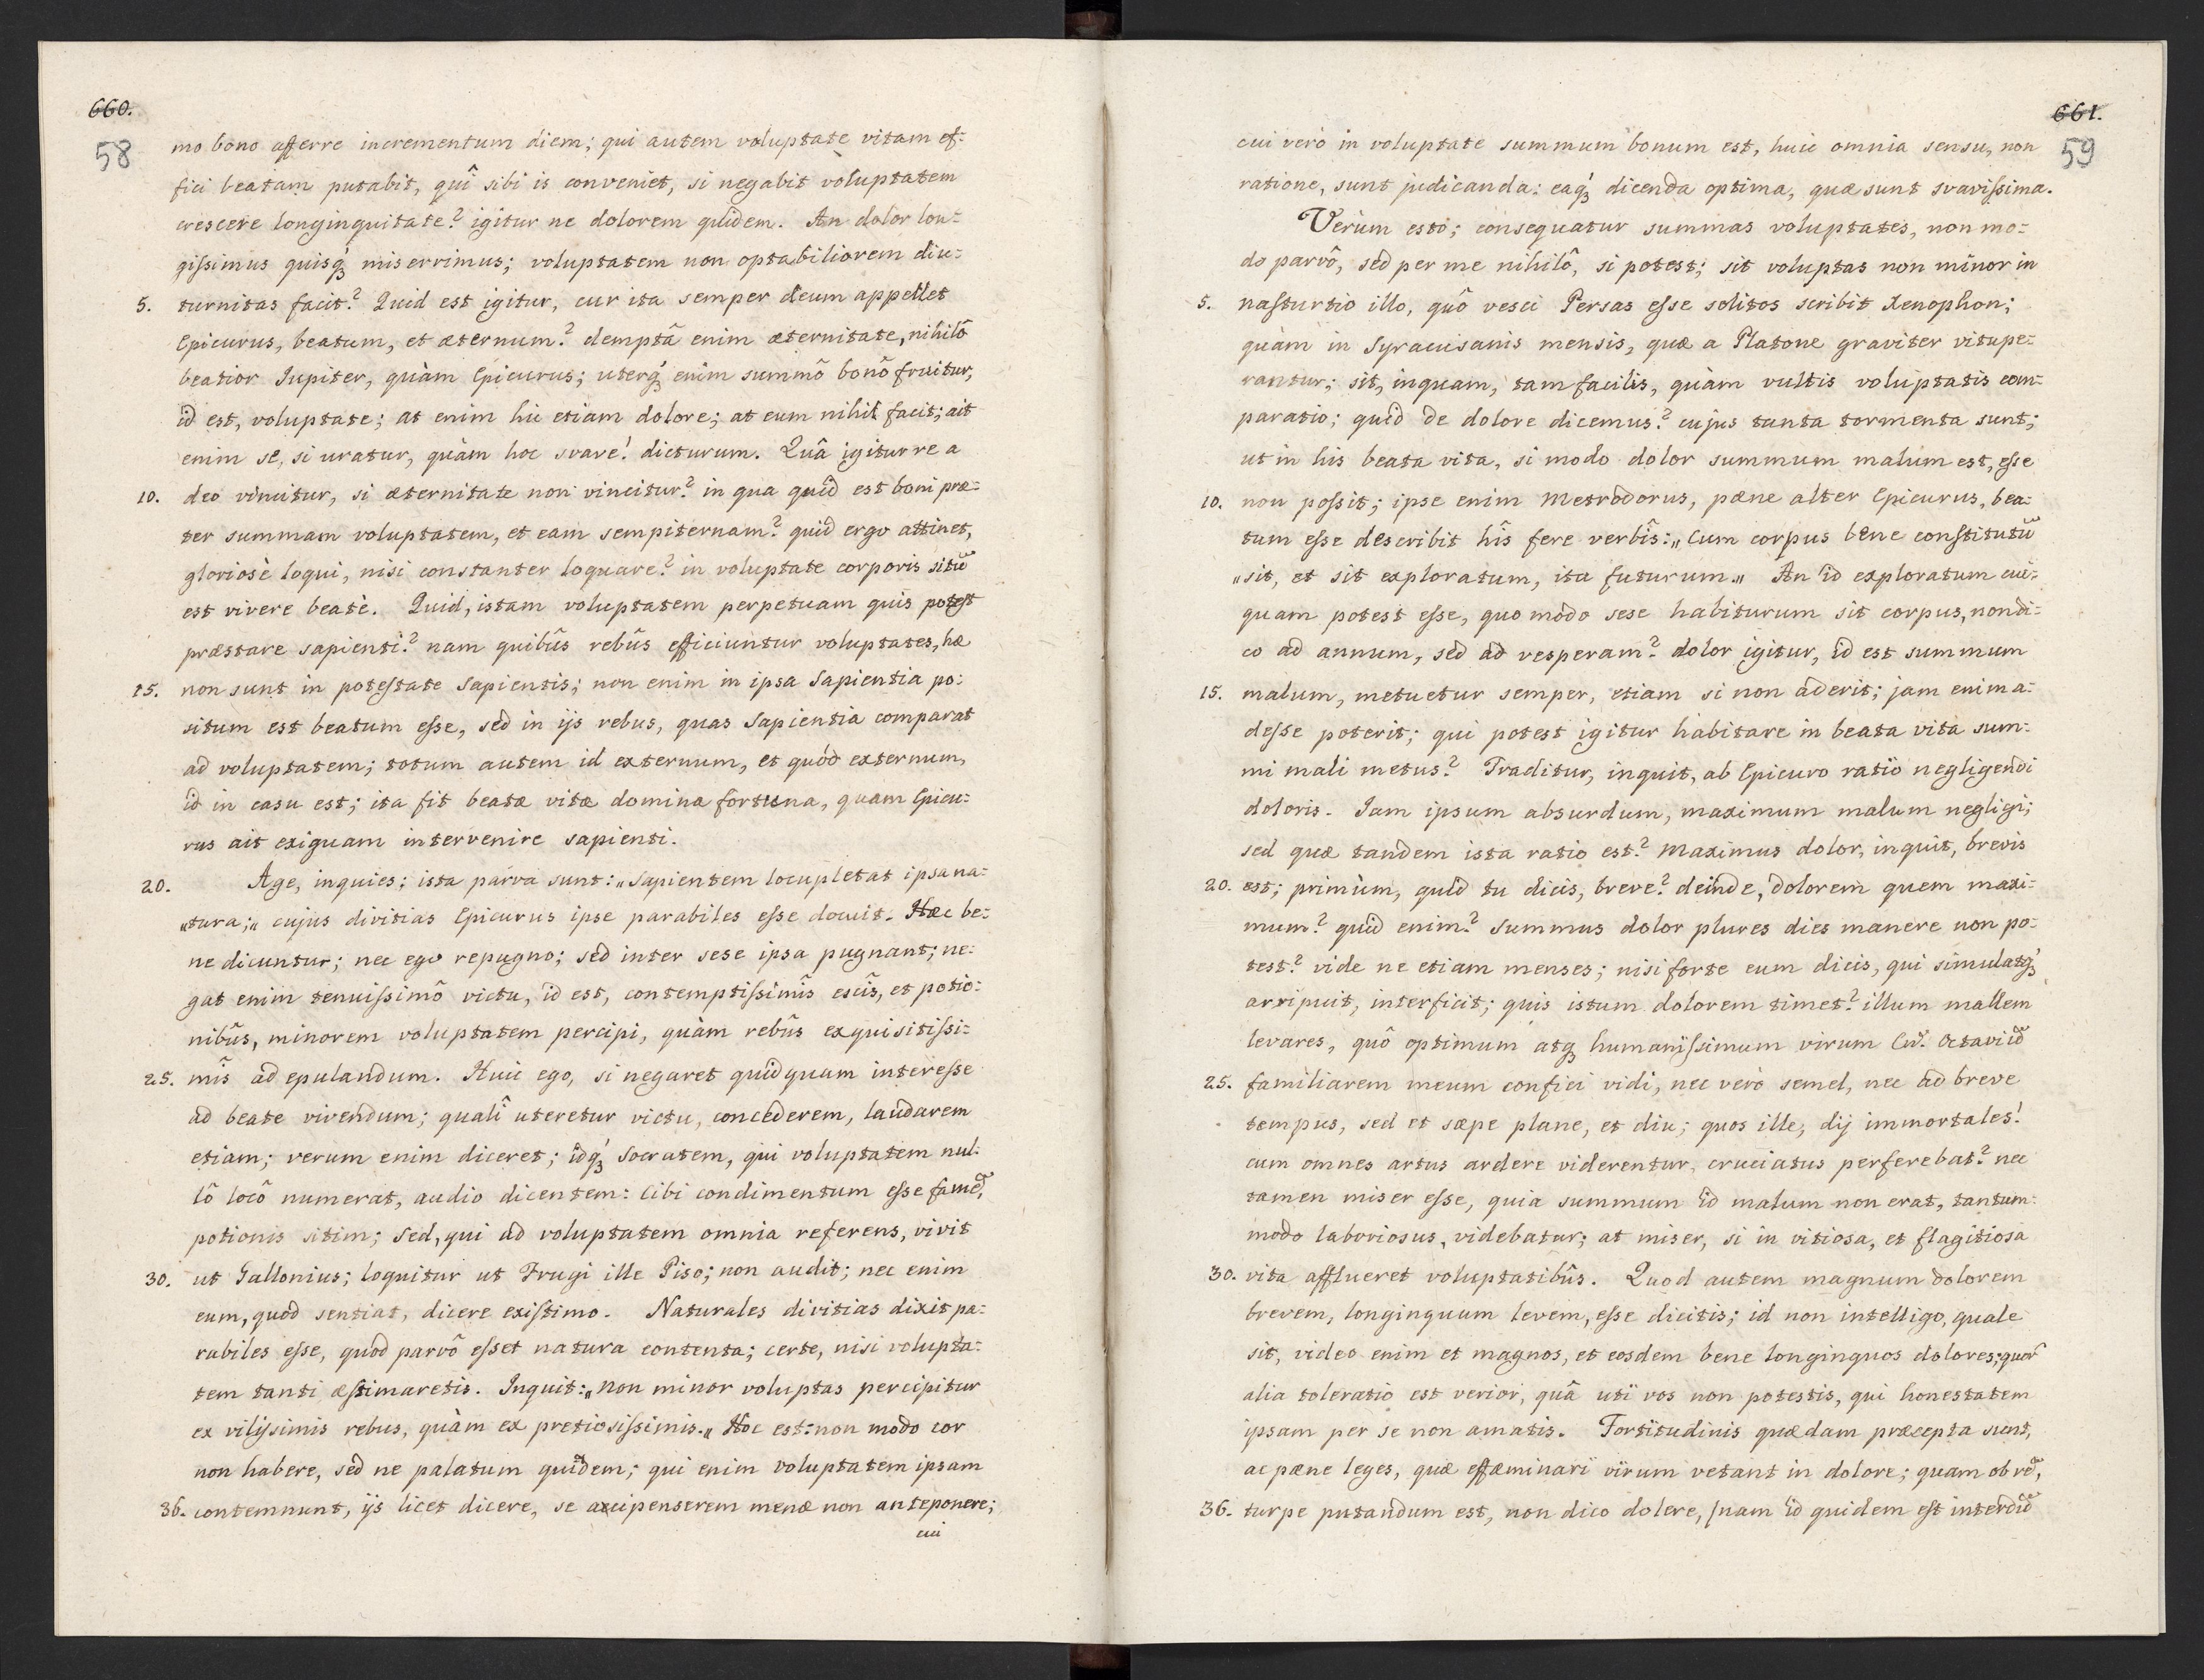 660.
58
mo bono afferre incrementum diem; qui autem voluptate vitam ef=
fici beatam putabit, quî sibi is conveniet, si negabit voluptatem
crescere longinquitate? igitur ne dolorem quidem. An dolor lon=
gissimus quisq́ꝫ miserrimus; voluptatem non optabiliorem diu=
5. turnitas facit? Quid est igitur, cur ita semper deum appellet
Epicurus, beatum, et æternum? demptâ enim æternitate, nihilô
beatior Jupiter, quàm Epicurus; uterq́ꝫ enim summô bonô fruitur,
id est, voluptate; at enim hic etiam dolore; at eum nihil facit; ait
enim se, si uratur, quàm hoc svave! dicturum. Quâ igitur re a
10. deo vincitur, si æternitate non vincitur? in qua quid est boni præ=
ter summam voluptatem, et eam sempiternam? quid ergo attinet,
gloriosè loqui, nisi constanter loquare? in voluptate corporis sitū
est vivere beatè. Quid, istam voluptatem perpetuam quis potest
præstare sapienti? nam quibûs rebûs efficiuntur voluptates, hæ
15. non sunt in potestate Sapientis; non enim in ipsa Sapientia po=
situm est beatum esse, sed in ijs rebus, quas Sapientia comparat
ad voluptatem; totum autem id externum, et quòd externum,
id in casu est; ita fit beatæ vitæ domina fortuna, quam Epicu=
rus ait exiguam intervenire sapienti.
20. Age, inquies; ista parva sunt: „Sapientem locupletat ipsa na=
„tura;„ cujus divitias Epicurus ipse parabiles esse docuit. Hæc be=
ne dicuntur; nec ego repugno; sed inter sese ipsa pugnant; ne=
gat enim tenuissimô victu, id est, contemptissimîs escîs, et potio=
nibûs, minorem voluptatem percipi, quàm rebûs exquisitissi=
25. mîs ad epulandum. Huic ego, si negaret quidquam interesse
ad beate vivendum; qualî uteretur victu, concederem, laudarem
etiam; verum enim diceret; idq́ꝫ Socratem, qui voluptatem nul=
lô locô numerat, audio dicentem: Cibi condimentum esse famē,
potionis sitim; Sed, qui ad voluptatem omnia referens, vivit
30. ut Gallonius; loquitur ut Frugi ille Piso; non audit; nec enim
eum, quod sentiat, dicere existimo. Naturales divitias dixit pa=
rabiles esse, quòd parvô esset natura contenta; certe, nisi volupta=
tem tanti æstimaretis. Inquit: „Non minor voluptas percipitur
ex vilissimis rebus, quàm ex pretiosissimis.„ Hoc est: non modo cor
non habere, sed ne palatum quidem; qui enim voluptatem ipsam
36. contemnunt, ijs licet dicere, se acipenserem menæ non anteponere;
cui
661.
59
cui verò in voluptate summum bonum est, huic omnia sensu, non
ratione, sunt judicanda: eaq́ꝫ dicenda optima, quæ sunt svavissima.
Verùm esto; consequatur summas voluptates, non mo=
do parvô, sed per me nihilô, si potest; sit voluptas non minor in
5. nasturtio illo, quô vesci Persas esse solitos scribit Xenophon;
quàm in Syracusanis mensis, quæ a Platone graviter vitupe=
rantur; sit, inquam, tam facilis, quàm vultis voluptatis com=
paratio; quid de dolore dicemus? cujus tanta tormenta sunt;
ut in his beata vita, si modo dolor summum malum est, esse
10. non possit; ipse enim Metrodorus, pæne alter Epicurus, bea=
tum esse describit hîs fere verbîs: „Cum corpus bene constitutū
„sit, et sit exploratum, ita futurum.„ An id exploratum cui=
quam potest esse, quo modo sese habiturum sit corpus, non di=
co ad annum, sed ad vesperam? dolor igitur, id est summum
15. malum, metuetur semper, etiam si non aderit; jam enim a=
desse poterit; qui potest igitur habitare in beata vita sum=
mi mali metus? Traditur, inquit, ab Epicuro ratio negligendi
doloris. Jam ipsum absurdum, maximum malum negligi;
sed quæ tandem ista ratio est? Maximus dolor, inquit, brevis
20. est; primùm, quid tu dicis, breve? deinde, dolorem quem maxi=
mum? quid enim? Summus dolor plures dies manere non po=
test? vide ne etiam menses; nisi forte eum dicis, qui simulatqꝫ
arripuit, interficit; quis istum dolorem timet? illum mallem
levares, quô optimum atqꝫ humanissimum virum Cn̄. Octaviū
25. familiarem meum confici vidi, nec verò semel, nec ad breve
tempus, sed et sæpe plane, et diu; quos ille, dij immortales!
cum omnes artus ardere viderentur, cruciatus perferebat? nec
tamen miser esse, quia summum id malum non erat, tantum=
modo laboriosus, videbatur; at miser, si in vitiosa, et flagitiosa
30. vita afflueret voluptatibûs. Quod autem magnum dolorem
brevem, longinquum levem, esse dicitis; id non intelligo, quale
sit, video enim et magnos, et eosdem bene longinquos dolores; quor̄
alia toleratio est verior, quâ uti vos non potestis, qui honestatem
ipsam per se non amatis. Fortitudinis quædam præcepta sunt,
ac pæne leges, quæ effæminari virum vetant in dolore; quam ob rē,
36. turpe putandum est, non dico dolere, /nam id quidem est interdū